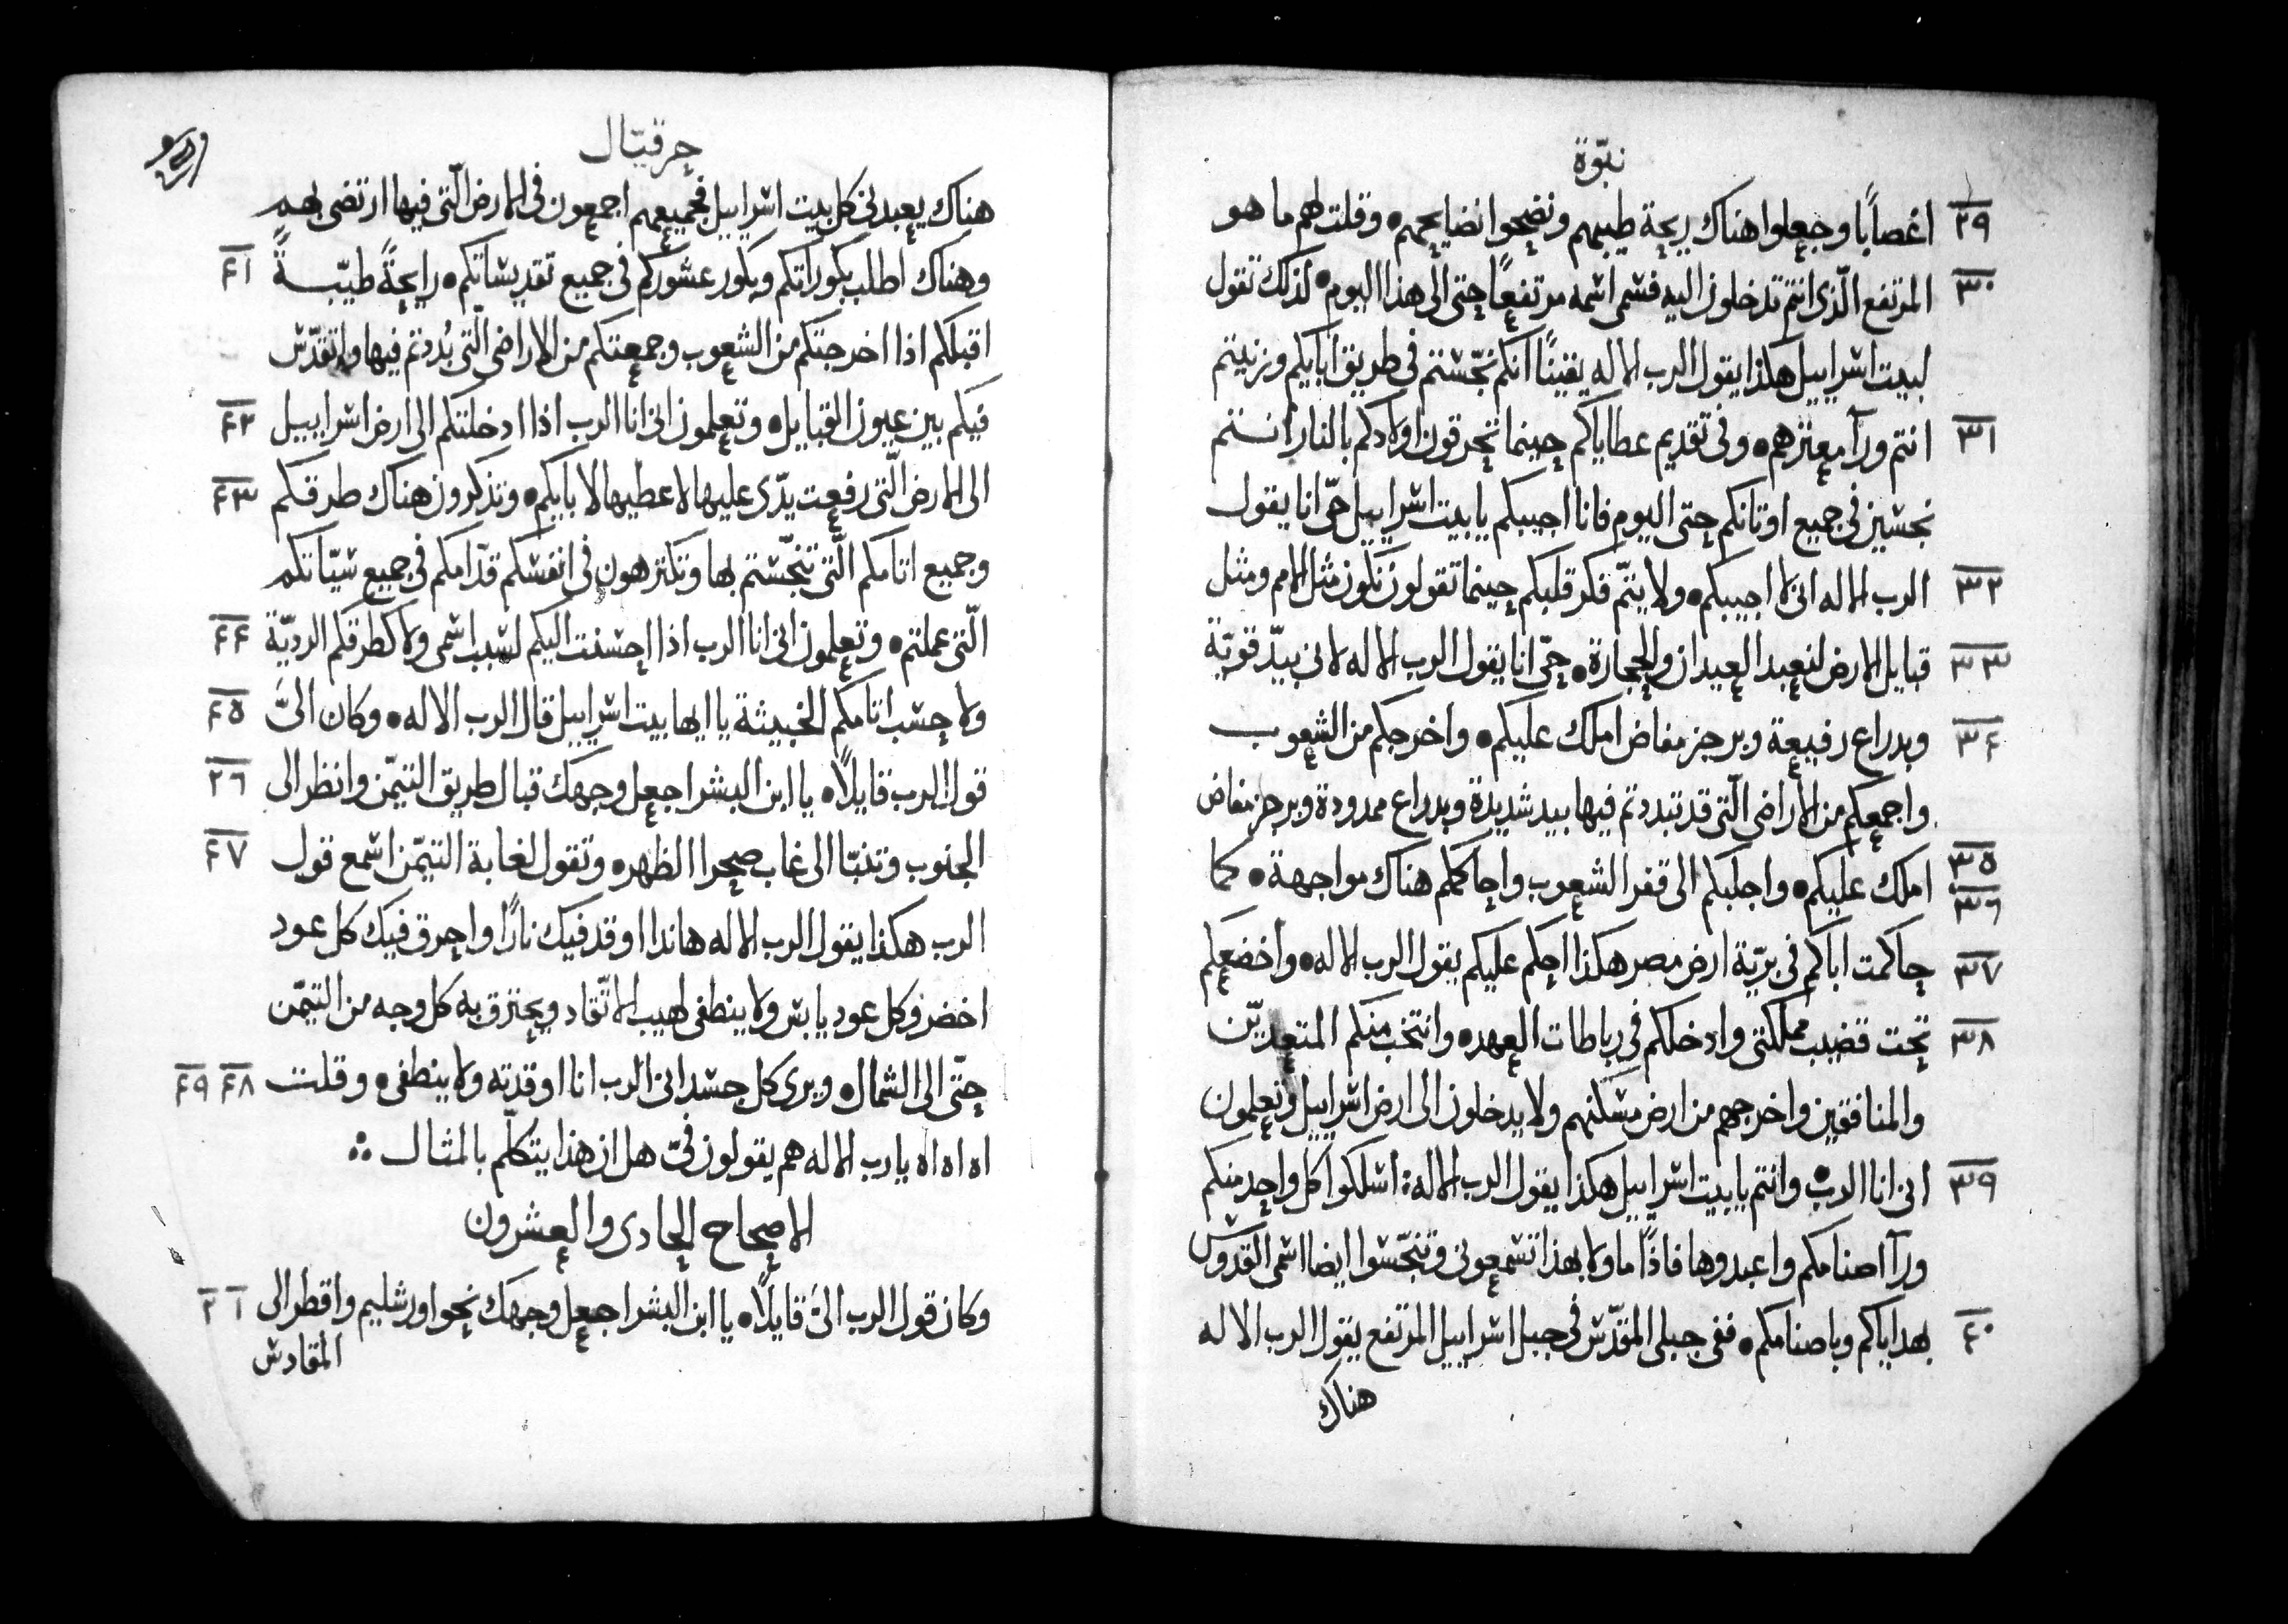 نبوّة
٢٩ اغصاباً وجعلوا هناك ريحة طيبهم ونضحوا نضايحهم ٠ وقلت لهم ما هو
٣٠ المرتفع الّذى انتم تدخلون اليه فسمى اسمه مرتفعاً حتى الى هذا اليوم ٠ لذلك تقول
لبيت اسراييل هكذا يقول الرب الاله يقيناً انكم نجّستم فى طريق ابايكم وزنيتم
٣١ انتم ورآ معثرهم ٠ وفى تقديم عطاياكم حينما تحرقون اولادكم بالنار انستم
نجسين فى جميع اوثانكم حتى اليوم فانا اجيبكم يا بيت اسراييل حىّ انا يقول
٣٢ الرب الاله انى لا اجيبكم ٠ ولا يتمّ فكر قلبكم حينما تقولون نكون مثل الامم ومثل
٣٣ قبايل الارض لنعبد العيدان والحجارة ٠ حىّ انا يقول الرب الاله لانى بيدّ قويّة
٣٤ وبدراع رفيعة وبرجز مفاض املك عليكم ٠ واخرجكم من الشعوب
واجمعكم من الاراضى الّتى قد تبددتم فيها بيد شديدة وبدراع ممدودة وبرجز مفاض
٣٥ ٣٦ املك عليكم ٠ واجلبكم الى قفر الشعوب واحاكمكم هناك مواجهة ٠ كما
٣٧ حاكمت اباكم فى بريّة ارض مصر هكذا احكم عليكم يقول الرب الاله ٠ واخضعكم
٣٨ تحت قضيب مملكتى وادخلكم فى رباطات العهد ٠ وانتخب منكم المتعديّن
والمنافقين واخرجهم من ارض مسكنهم ولا يدخلون الى ارض اسراييل وتعلمون
٣٩ انى انا الرب ٠ وانتم يا بيت اسراييل هكذا يقول الرب الاله : اسلكوا كل واحد منكم
ورآ اصنامكم واعبدوها فاذاً ما ولا بهذا تسمعونى وتنجّسوا ايضا اسمى القدوس
٤٠ بهداياكم وباصنامكم ٠ ففى جبلى المقدّس فى جبل اسراييل المرتفع يقول الرب الاله
هناك
حزقيّال
هناك يعبدنى كل بيت اسراييل فجميعهم اجمعون فى الارض الّتى فيها ارتضى بهم
٤١ وهناك اطلب بكوراتكم وبكور عشوركم فى جميع تقديساتكم ٠ رايحةً طيّبةً
اقبلكم اذا اخرجتكم من الشعوب وجمعتكم من الاراضى الّتى بُددتم فيها واتقدّس
٤٢ فيكم بين عيون القبايل ٠ وتعلمون انى انا الرب اذا ادخلتكم الى ارض اسراييل
٤٣ الى الارض الّتى رفعت يدّى عليها لاعطيها لابايكم ٠ وتذكرون هناك طرقكم
وجميع اثامكم الّتى تنجّستم بها وتكترهون فى انفسكم قدّامكم فى جميع سيّاتكم
٤٤ الّتى عملتم ٠ وتعلمون انى انا الرب اذا احسنت اليكم لسبب اسمى ولا كطرقكم الرديّة
٤٥ ولا حسب اثامكم الخبيثة يا ايها بيت اسراييل قال الرب الاله ٠ وكان الىَّ
٤٦ قول الرب قايلاً ٠ يا ابن البشر اجعل وجهك قبال طريق التيمّن وانظر الى
٤٧ الجنوب وتنبّا الى غاب صحرا الظهر ٠ وتقول لغابة التيمّن اسمع قول
الرب هكذا يقول الرب الاله هانذا اوقد فيك ناراً واحرق فيك كل عود
اخضر وكل عود يابس ولا ينطفى لهيب الاتّقاد ويحترق به كل وجه من التيمّن
٤٨ ٤٩ حتّى الى الشمال ٠ ويرى كل جسد انى الرب انا اوقدته ولا ينطفى ٠ وقلت
اه اه اه يا رب الاله هم يقولون فىّ هل ان هذا يتكلّم بالمثال ∴
الاصحاح الحادى والعشرون
١ ٢ وكان قول الرب الىَّ قايلاً ٠ يا ابن البشر اجعل وجهك نحو اورشليم واقطر الى
المقادس